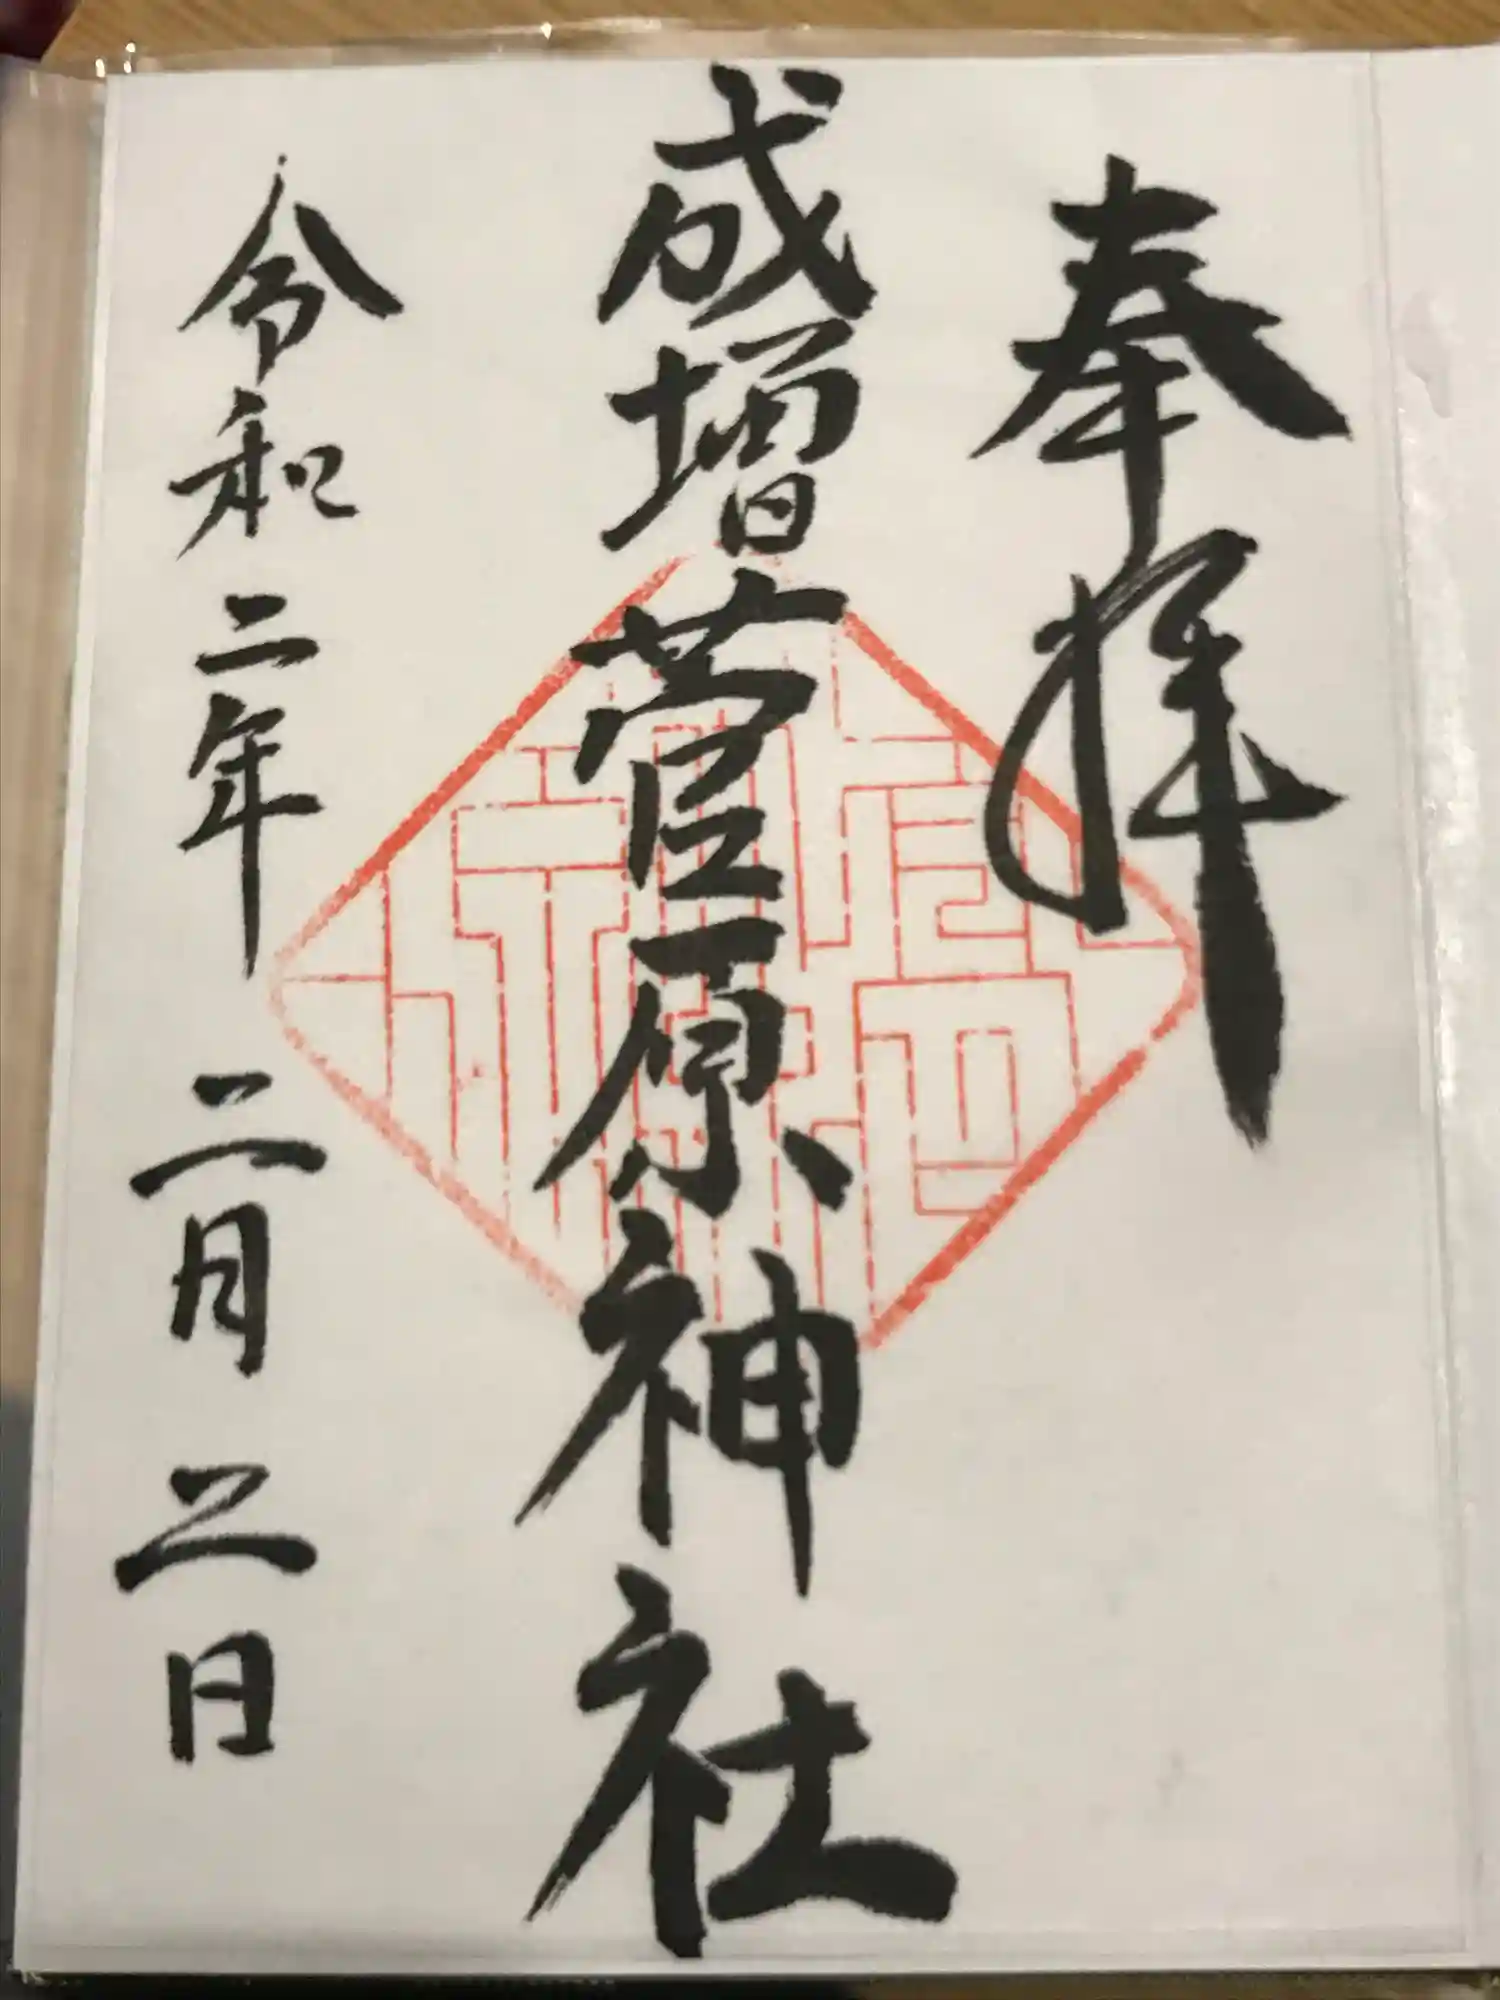 奉拝
成増菅原神社
令和二年 二月 二日